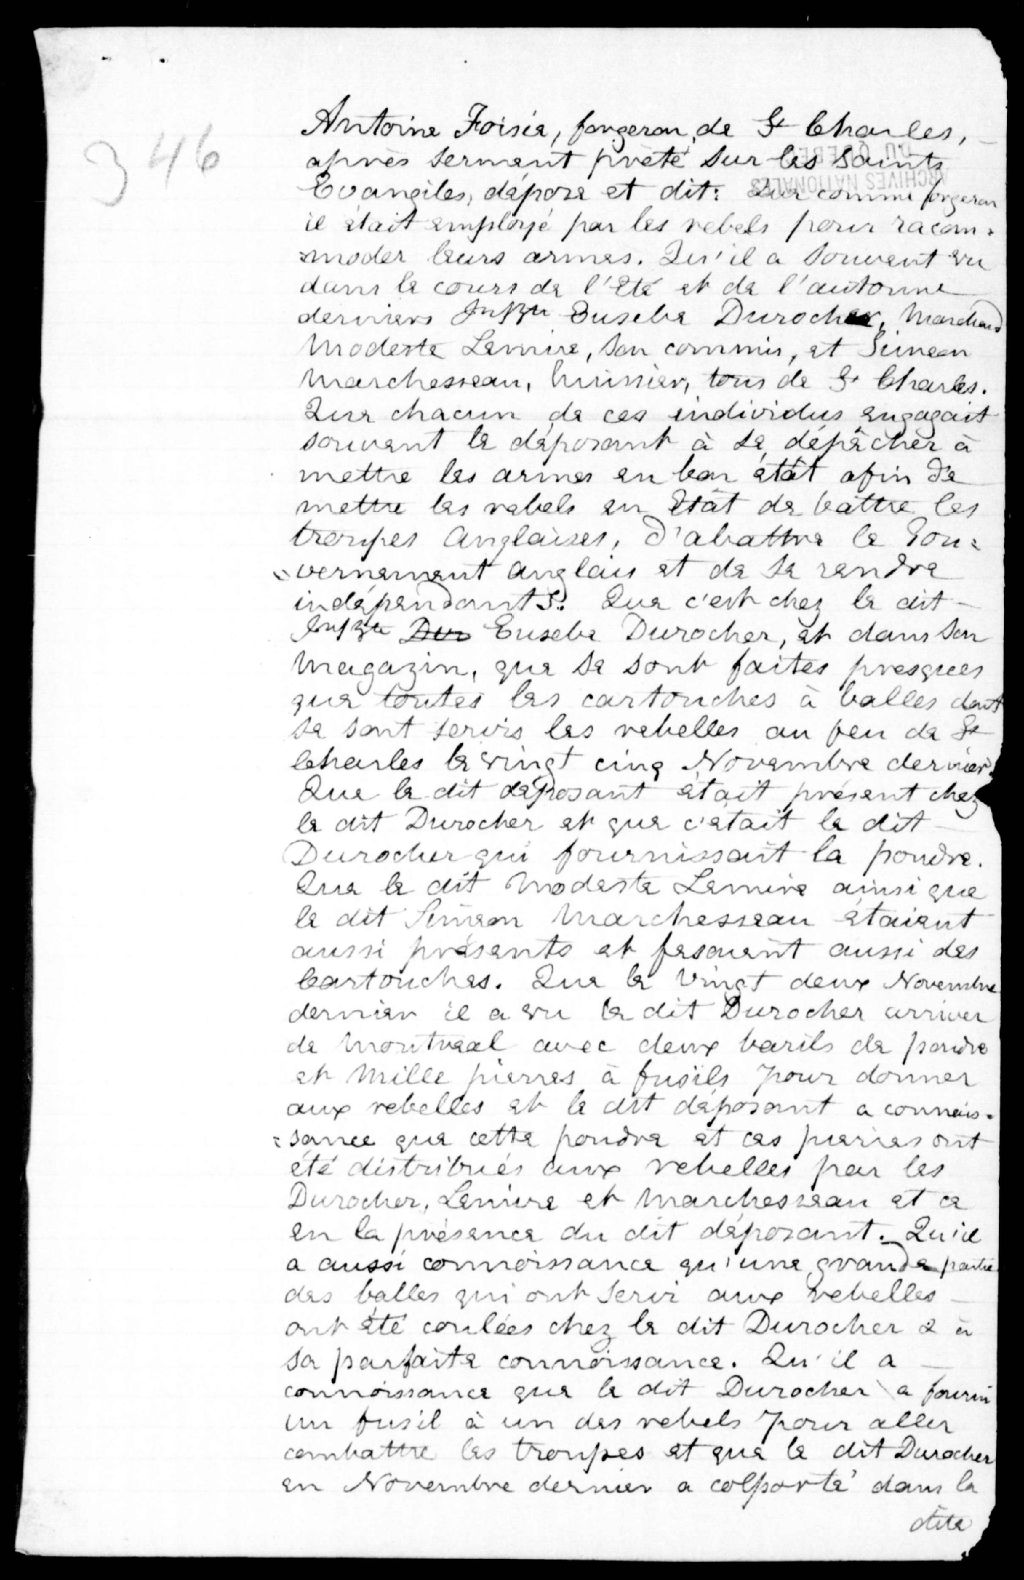 346
Antoine Foisie, forgeron, de St Charles,
après serment prêté sur les Saints
ARCHIVES NATIONALES
DU QUEBEC
Evangiles, dépose et dit: Que comme forgeron
il était employé par les rebels pour racom-
-moder leurs armes. Qu'il a souvent vu
dans le cours de l'Eté et de l'automne
derniers Eusebe Durocher, Marchand
Modeste Lemire, son commis, et Simeon
Marchesseau, huissier, tous de St Charles.
Que chacun de ces individus engageait
souvent le déposant à se dépêcher à
mettre les armes en bon état afin de
mettre les rebels en Etat de battre les
troupes Anglaises, d'abattre le Gou-
-vernement anglais et de se rendre
indépendants. Que c'est chez le dit
Eusebe Durocher, et dans son
Magazin, que se sont faites presques
que toutes les cartouches à balles dont
se sont servis les rebelles au feu de St
Charles le vingt cinq Novembre dernier
Que le dit déposant était présent chez
le dit Durocher et que c'était le dit
Durocher qui fournissait la poudre.
Que le dit Modeste Lemire ainsi que
le dit Siméon Marchesseau étaient
aussi présents et fesaient aussi des
Cartouches. Que le Vingt deux Novembre
dernier il a vu le dit Durocher arriver
de Montreal avec deux barils de poudre
et Mille pierres à fusils pour donner
aux rebelles et le dit déposant a connais-
-sance que cette poudre et ces pierres ont
été distribués aux rebelles par les
Durocher, Lemire et Marchesseau et ce
en la présence du dit déposant. Qu'il
a aussi connoissance qu'une grande partie
des balles qui ont servi aux rebelles
ont été coulées chez le dit Durocher & à
sa parfaite connoissance. Qu'il a
connoissance que le dit Durocher a fourni
un fusil à un des rebels pour aller
combattre les troupes et que le dit Durocher
en Novembre dernier a colporté dans la
dite